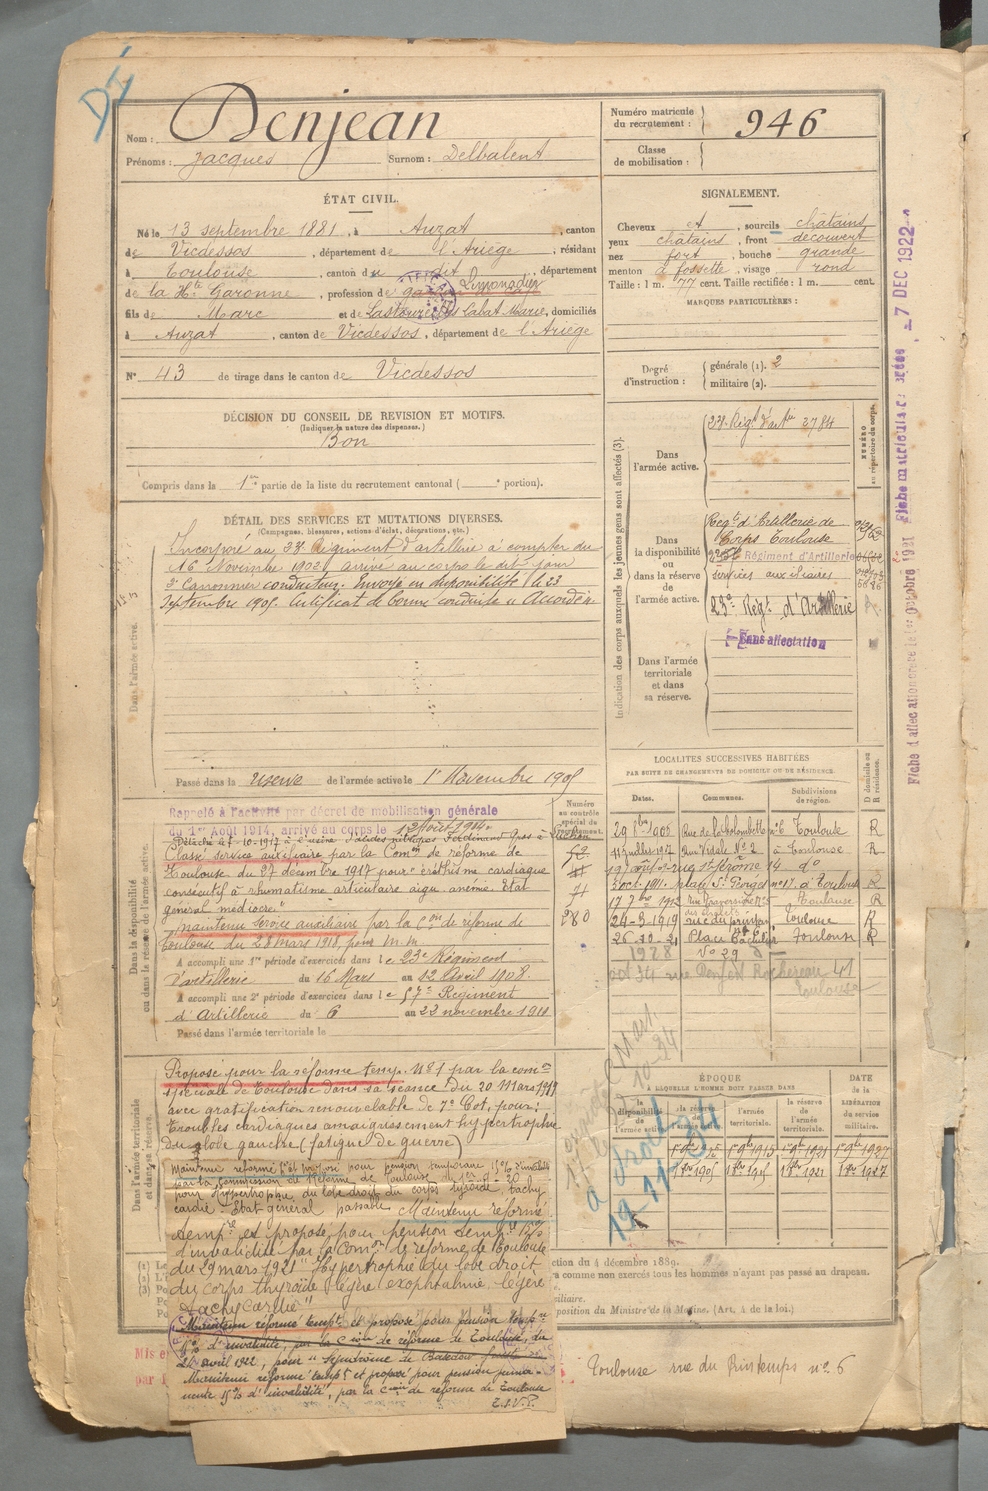 Dî
Nom : Denjean
Prénoms : Jacques Surnom : Delbalent
Numéro matricule du recrutement : 946
Classe de mobilisation :
ÉTAT CIVIL.
Né le 13 septembre 1881, à Auzat, canton
de Vicdessos, département de l'Ariège, résidant
à Toulouse, canton du dit, département
de la Hte Garonne, profession de Limonadier
fils de Marc et de Labat Marie, domiciliés
à Auzat, canton de Vicdessos, département de l'Ariège
N° 43 de tirage dans le canton de Vicdessos
SIGNALEMENT.
Cheveux et, sourcils châtains
yeux châtains, front découvert
nez fort, bouche grande
menton à fossette, visage rond
Taille : 1 m. 77 cent. Taille rectifiée : 1 m. cent.
MARQUES PARTICULIÈRES :
Degré d'instruction : générale (1). 2
militaire (2).
DÉCISION DU CONSEIL DE REVISION ET MOTIFS.
(Indiquer la nature des dispenses.)
Bon
Compris dans la 1re partie de la liste du recrutement cantonal ( e portion).
DÉTAIL DES SERVICES ET MUTATIONS DIVERSES.
(Campagnes, blessures, actions d'éclat, décorations, etc.)
Incorporé au 23e Régiment d'artillerie à compter du
16 Novembre 1902, arrivé au corps le dit jour
2e Canonnier conducteur. Envoyé en disponibilité le 23
Septembre 1905. Certificat de bonne conduite "Accordé".
Dans l'armée active.
Passé dans la réserve de l'armée active le 1er Novembre 1905
Indication des corps auxquels les jeunes gens sont affectés (3).
NUMÉRO au répertoire du corps.
Dans l'armée active.
23e Régt d'artie 2784
Dans la disponibilité ou dans la réserve de l'armée active.
Régt d'Artillerie de
Corps Toulouse
Régiment d'Artillerie
services auxiliaires
23e Régt d'Artillerie
Sans affectation
Dans l'armée territoriale et dans sa réserve.
Fiche matricule 7 DEC 1922
Fiche d'affectation octobre 1921
Dans la disponibilité ou dans la réserve de l'armée active.
Rappelé à l'activité par décret de mobilisation générale
du 1er Août 1914, arrivé au corps le Août 1914.
Classé service auxiliaire par la Comon de réforme de
Toulouse du 27 décembre 1917 pour "éréthisme cardiaque
consécutif à rhumatisme articulaire aigu anémie. état
général médiocre."
Maintenu Service auxiliaire par la Con de réforme de
Toulouse du 28 mars 1918, pour m.m.
A accompli une 1re période d'exercices dans le 23e Régiment
d'artillerie du 16 Mars au 12 Avril 1908.
A accompli une 2e période d'exercices dans le 57e Régiment
d'Artillerie du 6 au 22 novembre 1911
Passé dans l'armée territoriale le
Numéro au contrôle spécial du recrutement.
280
LOCALITÉS SUCCESSIVES HABITÉES
PAR SUITE DE CHANGEMENTS DE DOMICILE OU DE RÉSIDENCE.
Dates. Communes. Subdivisions de région. D domicile ou R résidence.
29 8bre 1906 Rue de la Colombette n° 6 Toulouse R
11 juillet 1907 Rue Vidale No 2 à Toulouse R
rue St Jérôme 14 do
3 oct. 1911 place St Georges n° 17 à Toulouse R
17 7bre 1912 Rue Traversière N° 5 Toulouse R
24-3-1919 rue du printemps Toulouse R
26 10 21 Place Toulouse R
1928 No 29
oct 34 rue Denfert Rochereau 41
Toulouse
Dans l'armée territoriale et dans sa réserve.
Proposé pour la réforme temp. N° 1 par la comon
spéciale de Toulouse dans sa séance du 20 Mars 1919
avec gratification renouvelable de 7e Cat. pour :
Troubles cardiaques amaigrissement hypertrophie
du globe gauche (fatigue de guerre)
Maintenu réformé
par la commission de Réforme de Toulouse
pour Hypertrophie du lobe droit du corps thyroïde, tachy
cardie - Etat général passable. Maintenu réformé
tempre et proposé pour pension tempre
d'invalidité par la Comon de réforme de Toulouse
du 29 mars 1921 "Hypertrophie du lobe droit
du corps thyroïde légère exophtalmie légère
tachycardie"
Maintenu réformé tempre et proposé pour pension tempre
d'invalidité, par la Cion de réforme de Toulouse, du
avril 1922, pour "Syndrome de Basedow
Maintenu réformé temp et proposé pour pension perma-
nente 15% d'invalidité, par la Cion de réforme de Toulouse
T.S.V.P.
ÉPOQUE
À LAQUELLE L'HOMME DOIT PASSER DANS
la disponibilité de l'armée active. la réserve de l'armée active. l'armée territoriale. la réserve de l'armée territoriale.
DATE de la LIBÉRATION du service militaire.
1er 9bre 1905 1er 9bre 1915 1er 9bre 1921 1er 9bre 1927
1er 8bre 1905 1er 8bre 1915 1er 8bre 1921 1er 8bre 1927
à droit
19-11-34
ction du 4 décembre 1889.
a comme non exercés tous les hommes n'ayant pas passé au drapeau.
xiliaire.
position du Ministre de la Marine. (Art. 4 de la loi.)
Toulouse rue du Printemps n° 6